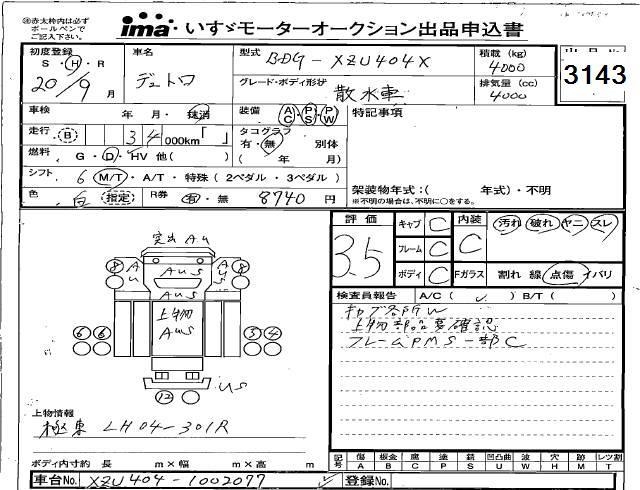 ※赤太枠内は必ず
ボールペンで
ご記入下さい。
ima いすゞモーターオークション出品申込書
初度登録 車名 型式 BDG-XZU404X 積載 (kg) 出品No.
S・H・R デュトロ 4000 3143
20/9月 グレード・ボディ形状 散水車 排気量 (cc) 4000
車検 年 月・抹消 装備 AC PS PW 特記事項
走行 B 34 000km「 」 タコグラフ
有・無 別体
燃料 G・D・HV 他( ) ( 年 月)
シフト 6 M/T・A/T・特殊(2ペダル・3ペダル)
架装物年式:( 年式)・不明
※不明の場合は、不明に○をする。
色 白 指定 R券 有・無 8740円
評価 3.5 キャブ C 内装 C 汚れ 破れ ヤニ スレ
フレーム C
ボディ C Fガラス 割れ 線 点傷 イバリ
突出 AU
8 AU AUS AUS 8
上物
AUS
6 6 3 4
12 US
検査員報告 A/C( ✓ ) B/T( )
キャブ各所W
上物部品要確認
フレームPMS一部C
上物情報
極東 LH04-301R
ボディ内寸約 長 m×幅 m×高 m
記号 傷 板金 腐 塗 錆 凹凸曲 波 穴 跡 レツ割
A B C P S U W H M T
車台No. XZU404-1002077 登録No.